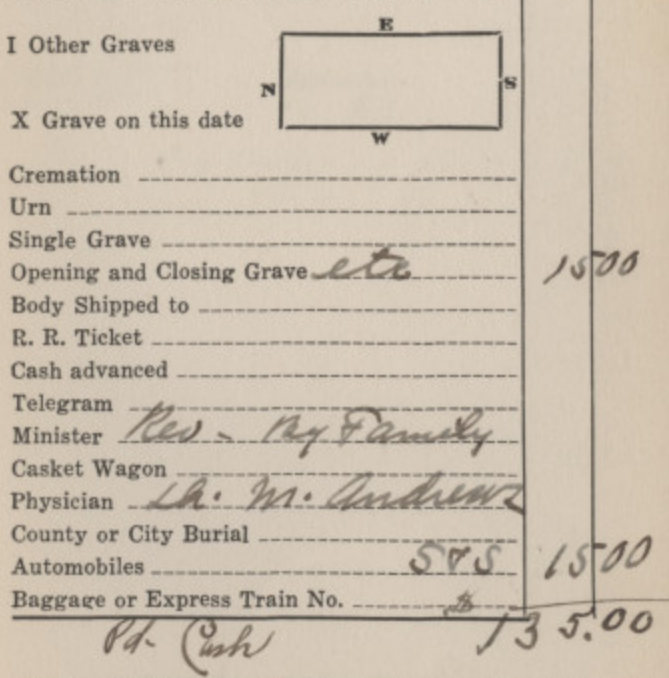 I Other Graves
E
N
S
X Grave on this date
W
Cremation
Urn
Single Grave
Opening and Closing Grave etc 15 00
Body Shipped to
R. R. Ticket
Cash advanced
Telegram
Minister Rev - By Family
Casket Wagon
Physician M. Andrews
County or City Burial
Automobiles 15 00
Baggage or Express Train No. $
Pd. Cash 135.00